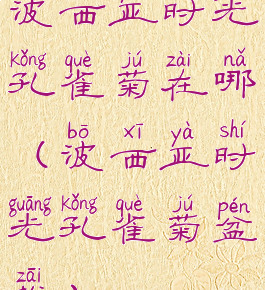 波西亚时光
kǒng què jú zài nǎ
孔雀菊在哪
bō xī yà shí
（波西亚时
guāng kǒng què jú pén
光孔雀菊盆
zāi